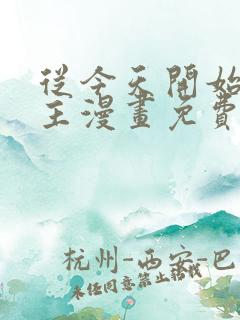 從今天開始
王漫畫免費
杭州-西安-巴
未经同意禁止转载